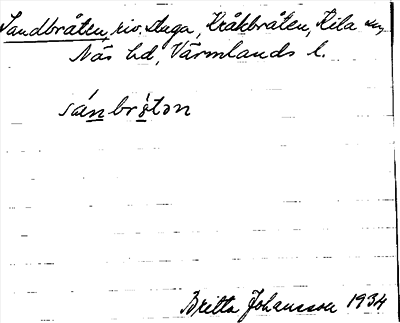 Sandbråten, riv. stuga, Kråkbråten, Kila sn,
Näs hd, Värmlands l.
sánbrò̥tən
Britta Johansson 1934